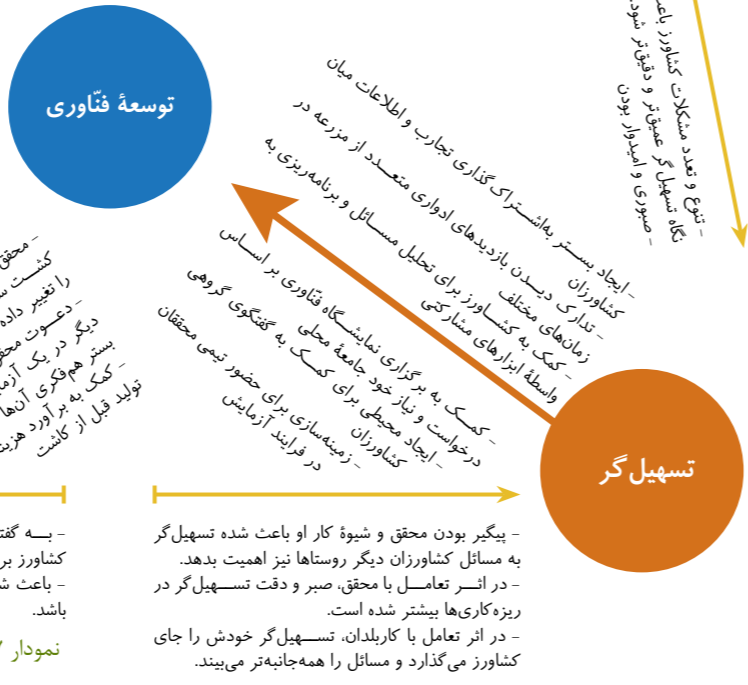 توسعهٔ فنّاوری
- تنوع و تعدد مشکلات کشاورز
نگاه تسهیل گر عمیق‌تر و دقیق‌تر شود.
- صبوری و امیدوار بودن
- ایجاد بستر به‌اشتراک گذاری تجارب و اطلاعات میان
کشاورزان
- تدارک دیدن بازدیدهای ادواری متعدد از مزرعه در
زمان‌های مختلف
- کمک به کشاورز برای تحلیل مسائل و برنامه‌ریزی به
واسطهٔ ابزارهای مشارکتی
- کمک به برگزاری نمایشگاه فنّاوری بر اساس
درخواست و نیاز خود جامعهٔ محلی
- ایجاد محیطی برای کمک به گفتگوی گروهی
کشاورزان
- زمینه‌سازی برای حضور تیمی محققان
در فرایند آزمایش
تسهیل گر
- محقق
کشت
را تغییر داده
- دعوت
دیگر در یک
بستر هم‌فکری آن‌ها
- کمک به برآورد
تولید قبل از کاشت
- پیگیر بودن محقق و شیوهٔ کار او باعث شده تسهیل‌گر
به مسائل کشاورزان دیگر روستاها نیز اهمیت بدهد.
- در اثر تعامل با محقق، صبر و دقت تسهیل‌گر در
ریزه‌کاری‌ها بیشتر شده است.
- در اثر تعامل با کاربلدان، تسهیل‌گر خودش را جای
کشاورز می‌گذارد و مسائل را همه‌جانبه‌تر می‌بیند.
- به
کشاورز
- باعث
باشد.
نمودار